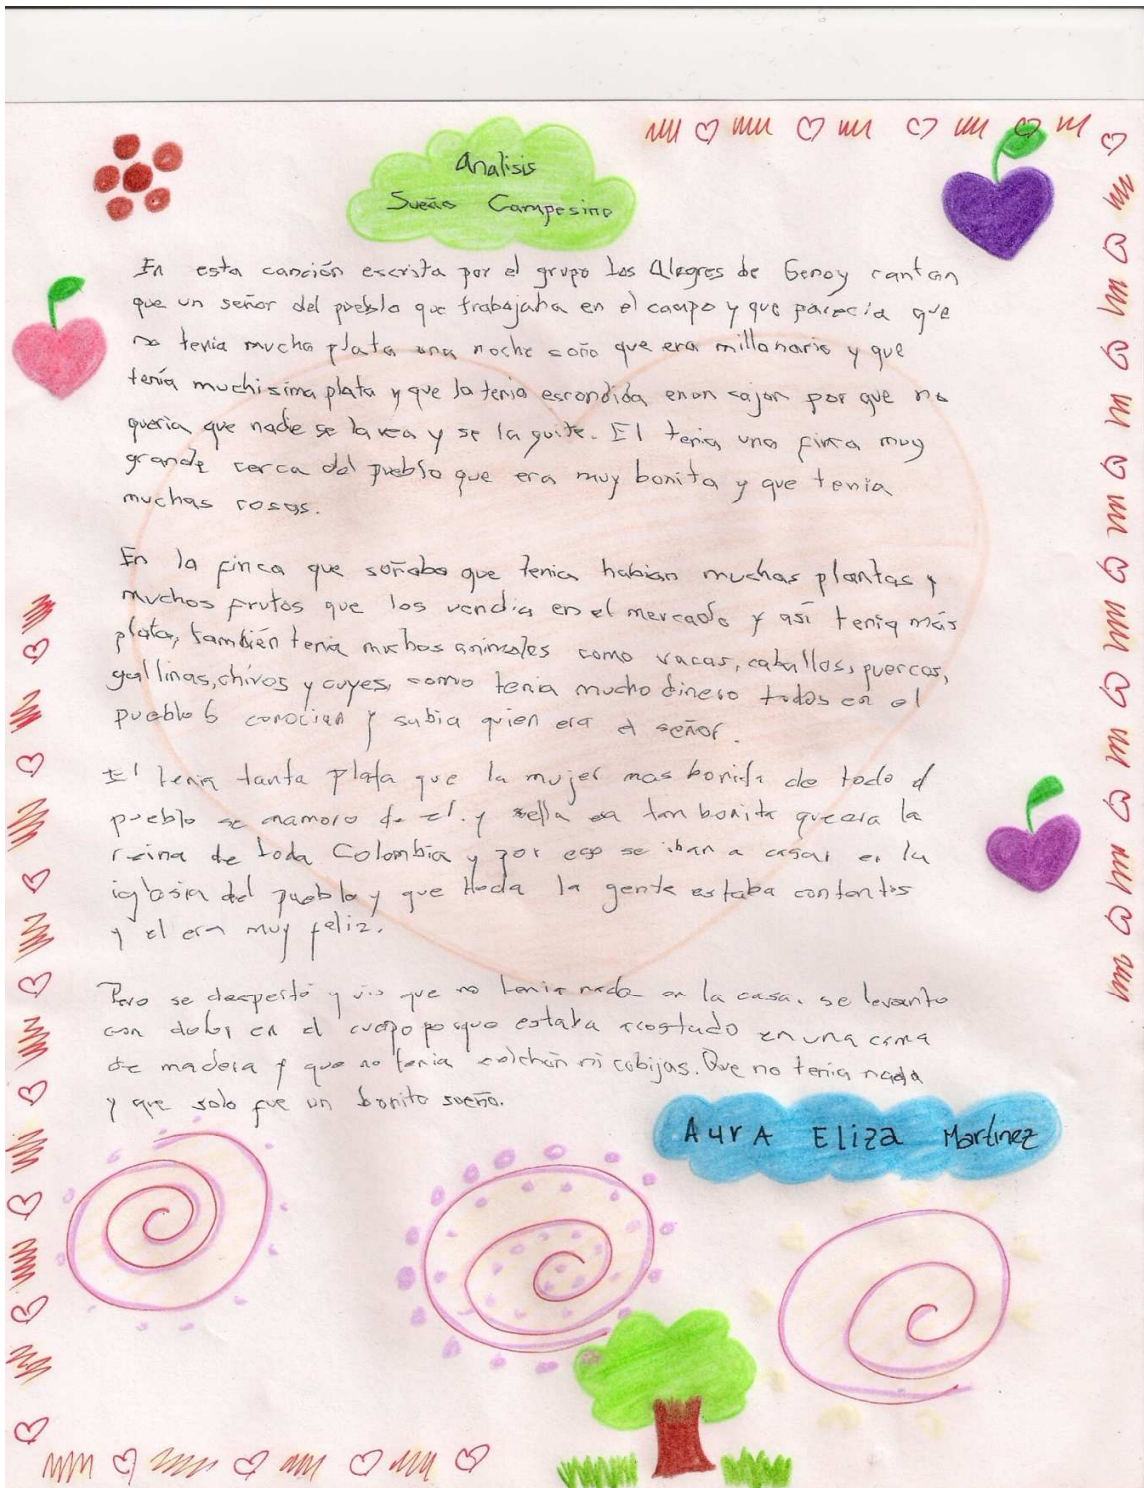 Analisis
Sueño Campesino
En esta canción escrita por el grupo los Alegres de Genoy cantan
que un señor del pueblo que trabajaba en el campo y que parecia que
no tenia mucha plata una noche soño que era millonario y que
tenía muchisima plata y que la tenia escondida enun cajon por que no
queria que nadie se la vea y se la quite. El tenia una finca muy
grande cerca del pueblo que era muy bonita y que tenia
muchas rosas.
En la finca que soñaba que tenia habian muchas plantas y
muchos frutos que los vendia en el mercado y así tenia más
plata, también tenia muchos animales como vacas, caballos, puercos,
gallinas, chivos y cuyes, como tenia mucho dinero todos en el
pueblo lo conocian y sabia quien era el señor.
El tenia tanta plata que la mujer mas bonita de todo el
pueblo se enamoro de el. y ella era tan bonita que era la
reina de toda Colombia y por eso se iban a casar en la
iglesia del pueblo y que toda la gente estaba contentos
y el era muy feliz.
Pero se despertó y vio que no tenia nada en la casa. se levanto
con dolor en el cuerpo porque estaba acostado en una cama
de madera y que no tenia colchón ni cobijas. Que no tenia nada
y que solo fue un bonito sueño.
Aura Eliza Martinez